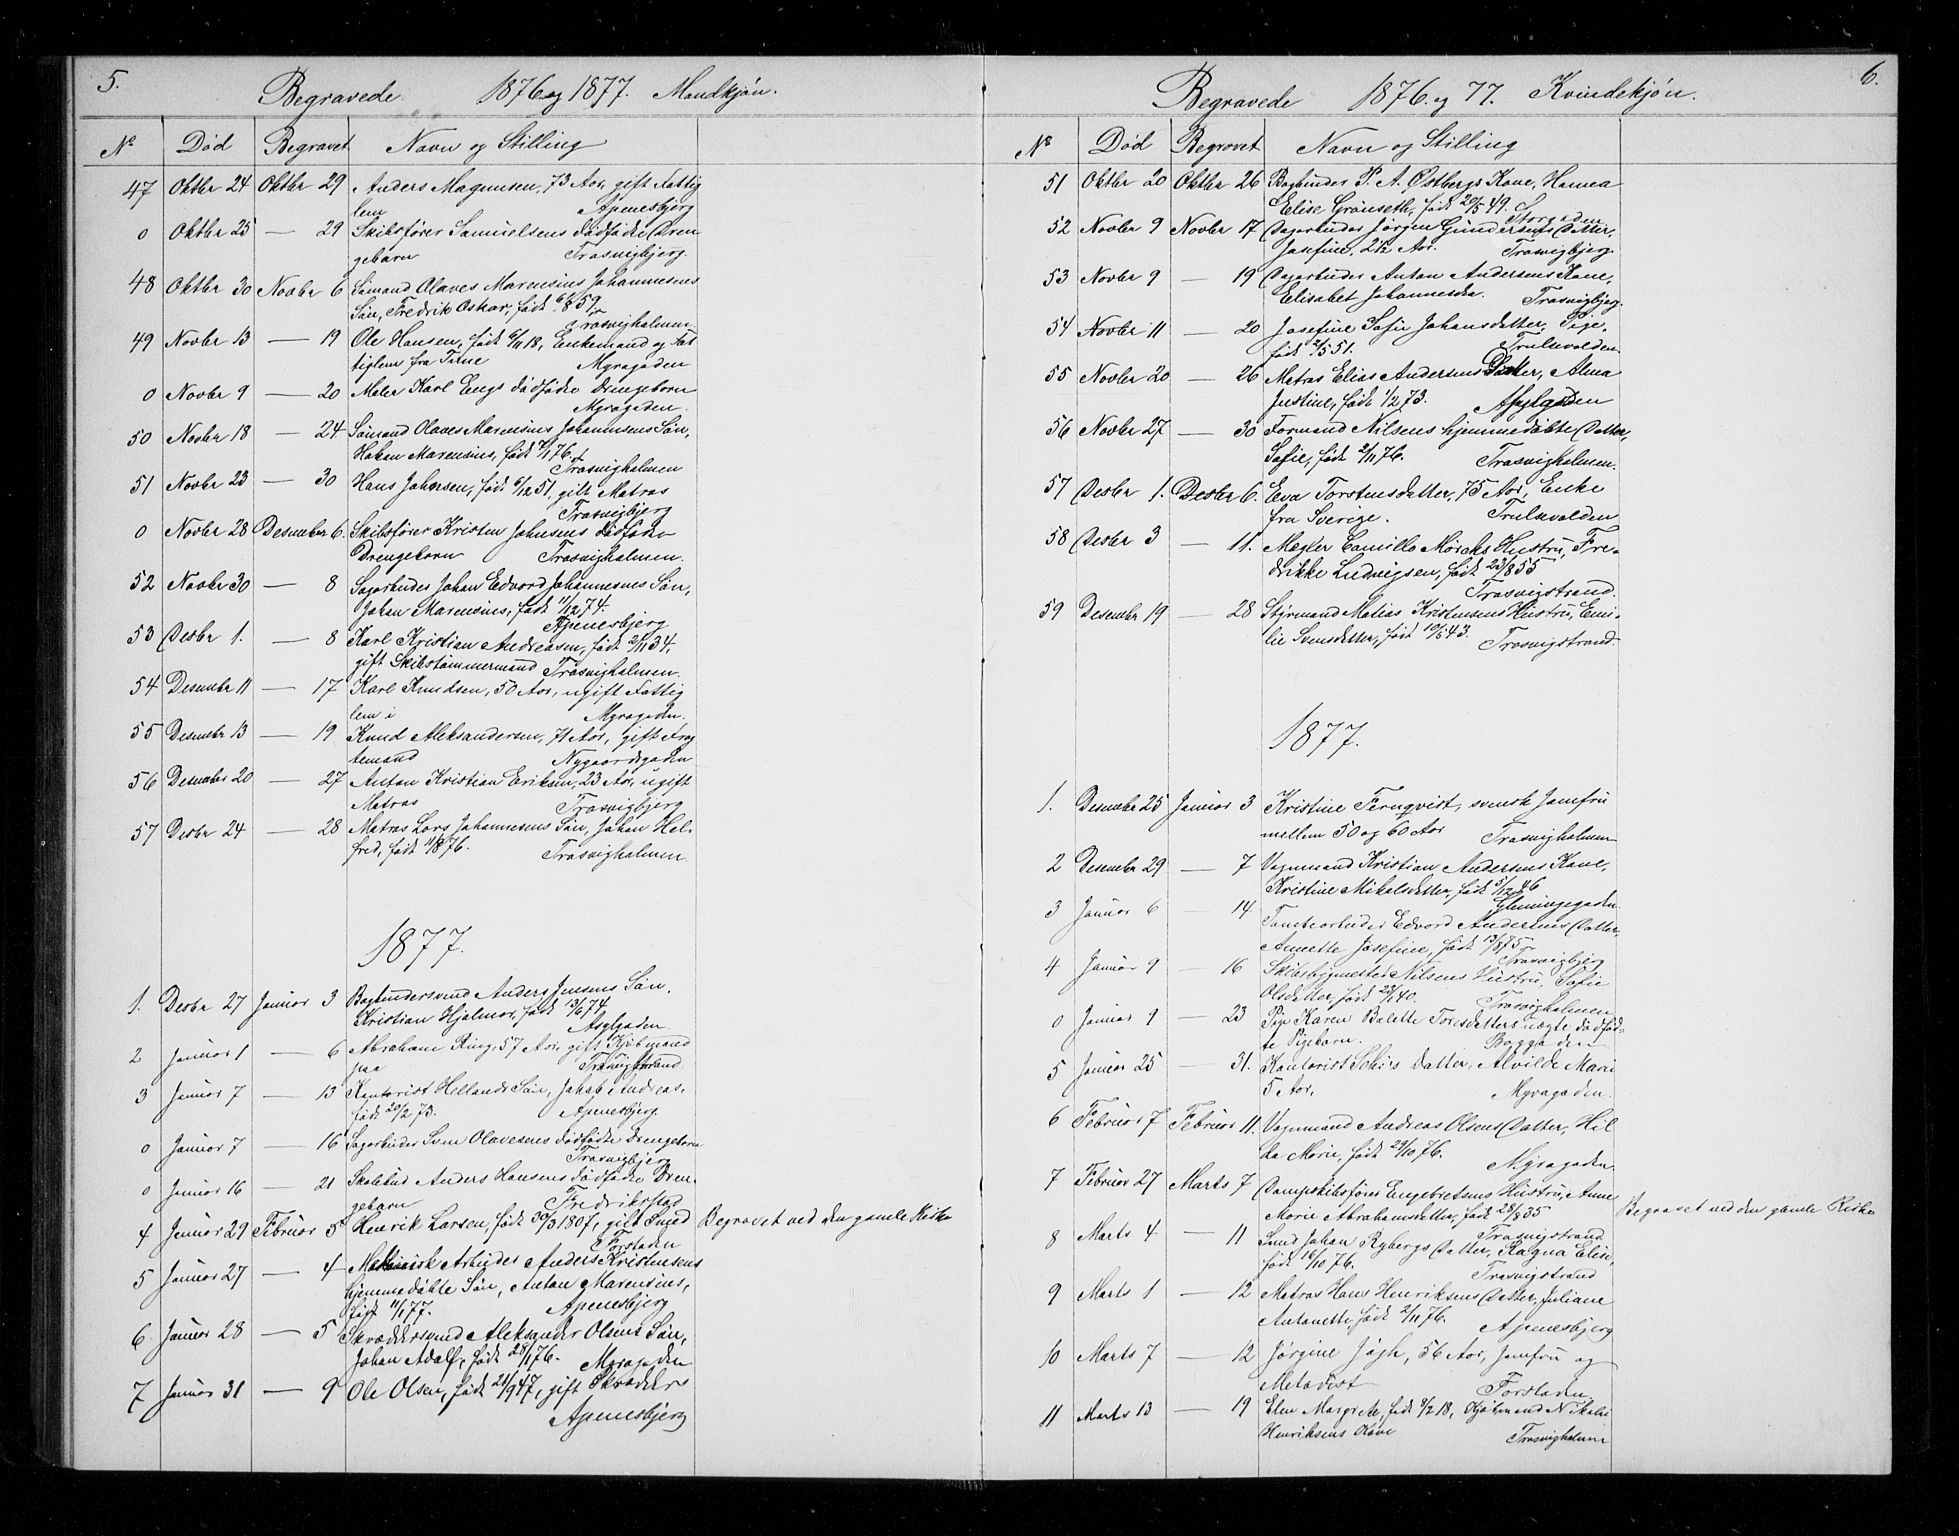 5.
Begravede 1876 og 1877. Mandkjøn.
No Død Begravet Navn og Stilling
47 Oktbr 24 Oktbr 29 Anders Magnusen, 73 Aar, gift Fattig
lem Apenesbjerg
0 Oktbr 25 — 29 Skibsfører Samuelsens dødfødte Dren
gebarn Trosvigbjerg.
48 Oktbr 30 Novbr 6 Sømand Olaves Marensius Johannesens
Søn, Fredrik Oskar, født 59.
Trosvigholmen
49 Novbr 13 — 19 Ole Hansen, født 6/11 18, Enkemand og Fat
tiglem fra Tune Myragaden
0 Novbr 9 — 20 Maler Karl Engs dødfødte Drengebarn
Myragaden.
50 Novbr 18 — 24 Sømand Olaves Marensius Johannesens Søn,
Hakon Marensius, født 76.
Trosvigholmen
51 Novbr 23 — 30 Hans Johnsen, født 6/12 51, gift Matros
Trosvigbjerg
0 Novbr 28 Desember 6. Skibsfører Kristen Johnsens dødfødte
Drengebarn Trosvigholmen.
52 Novbr 30 — 8 Sagarbeider Johan Edvard Johannesens Søn,
Johan Marensius, født 11/12 74.
Apenesbjerg
53 Desbr 1. — 8 Karl Kristian Andreasen, født 2/11 34,
gift Skibstømmermand Trosvigholmen.
54 Desember 11 — 17 Karl Knudsen, 50 Aar, ugift Fattig
lem i Myragaden.
55 Desember 13 — 19 Knud Aleksandersen, 71 Aar, gift Frag
temand Nygaardsgaden
56 Desember 20 — 27 Anton Kristian Eriksen, 23 Aar, ugift
Matros Trosvigbjerg
57 Desbr 24 — 28 Matros Lars Johannesens Søn, Johan Hel-
fred, født 11/8 76. Trosvigholmen.
1877.
1. Desbr 27 Januar 3 Bagbindersvend Anders Jensens Søn,
Kristian Hjalmar, født 13/6 74.
Asylgaden
2 Januar 1 — 6 Abraham Ring, 57 Aar, gift Kjøbmand
paa Trosvigstrand
3 Januar 7 — 13 Kontorist Hellands Søn, Jakob Andreas,
født 20/2 73. Apenesbjerg
0 Januar 7 — 16 Sagarbeider Sven Olavesens dødfødte Drengebarn
Trosvigbjerg
0 Januar 16 — 21 Skolebud Anders Hansens dødfødte Dren-
gebarn Fredrikstad
4 Januar 29 Februar 5 Henrik Larsen, født 30/3 1807, gift Smed Begravet ved den gamle Kirke
Forstaden
5 Januar 27 — 4 Mekanisk Arbeider Anders Kristensens
hjemmedøbte Søn, Anton Marensius,
født 11/1 77. Apenesbjerg
6 Januar 28 — 5 Skræddersvend Aleksander Olsens Søn,
Johan Adolf, født 28/1 76. Myragaden
7 Januar 31 — 9 Ole Olsen, født 21/9 47, gift Skrædder
Apenesbjerg
6.
Begravede 1876 og 77. Kvindekjøn.
No Død Begravet Navn og Stilling
51 Oktbr 20 Oktbr 26 Bogbinder P. A. Østbergs Kone, Hanna
Elise Grønseth, født 20/5 49.
Storgaden
52 Novbr 9 Novbr 17 Sagarbeider Jørgen Gundersens Datter,
Josefine, 2 1/2 Aar. Trosvigbjerg
53 Novbr 9 — 19 Sagarbeider Anton Andersens Kone,
Elisabet Johannesdtr. Trosvigbjerg.
54 Novbr 11 — 20 Josefine Sofie Johansdatter, Pige,
født 2/5 51. Trulsvolden.
55 Novbr 20 — 26 Matros Elias Andersens Datter, Alma
Justine, født 1/2 73. Asylgaden
56 Novbr 27 — 30 Formand Nilsens hjemmedøbte Datter,
Sofie, født 2/11 76. Trosvigholmen.
57 Desbr 1. Desbr 6. Eva Torstensdatter, 75 Aar, Enke
fra Sverige. Trulsvolden
58 Desbr 3 — 11. Mægler Camillo Mørchs Hustru, Fre-
drikke Ludvigsen, født 23/8 55
Trosvigstrand.
59 Desember 19 — 28 Styrmand Matias Kristensens Hustru, Emi-
lie Svensdatter, født 10/5 43. Trosvigstrand.
1877.
1. Desember 25 Januar 3 Kristine Fernqvist, svensk Jomfru
mellem 50 og 60 Aar Trosvigholmen
2 Desember 29 — 7 Vognmand Kristian Andersens Kone,
Kristine Mikelsdatter, født 5/12 46
Glemmegaden.
3 Januar 6 — 14 Tomtearbeider Edvard Andersens Datter,
Annette Josefine, født 13/8 75.
Trosvigbjerg
4 Januar 9 — 16 Skibsbygmester Nilsens Hustru, Sofie
Olsdatter, født 23/1 40.
Trosvigholmen
0 Januar 9 — 23 Pige Karen Bolette Toresdatters uægte dødfød-
te Pigebarn. Baggaden
5 Januar 25 — 31. Kontorist Schøs Datter, Alvilde Marie
5 Aar. Myragaden.
6 Februar 7 Februar 11. Vognmand Andreas Olsens Datter, Hil
da Marie, født 29/10 76. Myragaden.
7 Februar 27 Marts 7 Dampskibsfører Engebretsens Hustru, Anne
Marie Abrahamsdatter, født 28/8 35 Begravet ved den gamle Kirke
Trosvigstrand
8 Marts 4 — 11 Smed Johan Rybergs Datter, Ragna Elise,
født 16/10 76. Trosvigstrand
9 Marts 1 — 12 Matros Hans Henriksens Datter, Juliane
Antonette, født 2/11 76. Apenesbjerg
10 Marts 7 — 12 Jørgine Jøgh, 56 Aar, Jomfru og
Metodist Forstaden
11 Marts 13 — 19 Elen Margrete, født 8/2 18, Kjøbmand Nikolai
Henriksens Kone Trosvigholmen